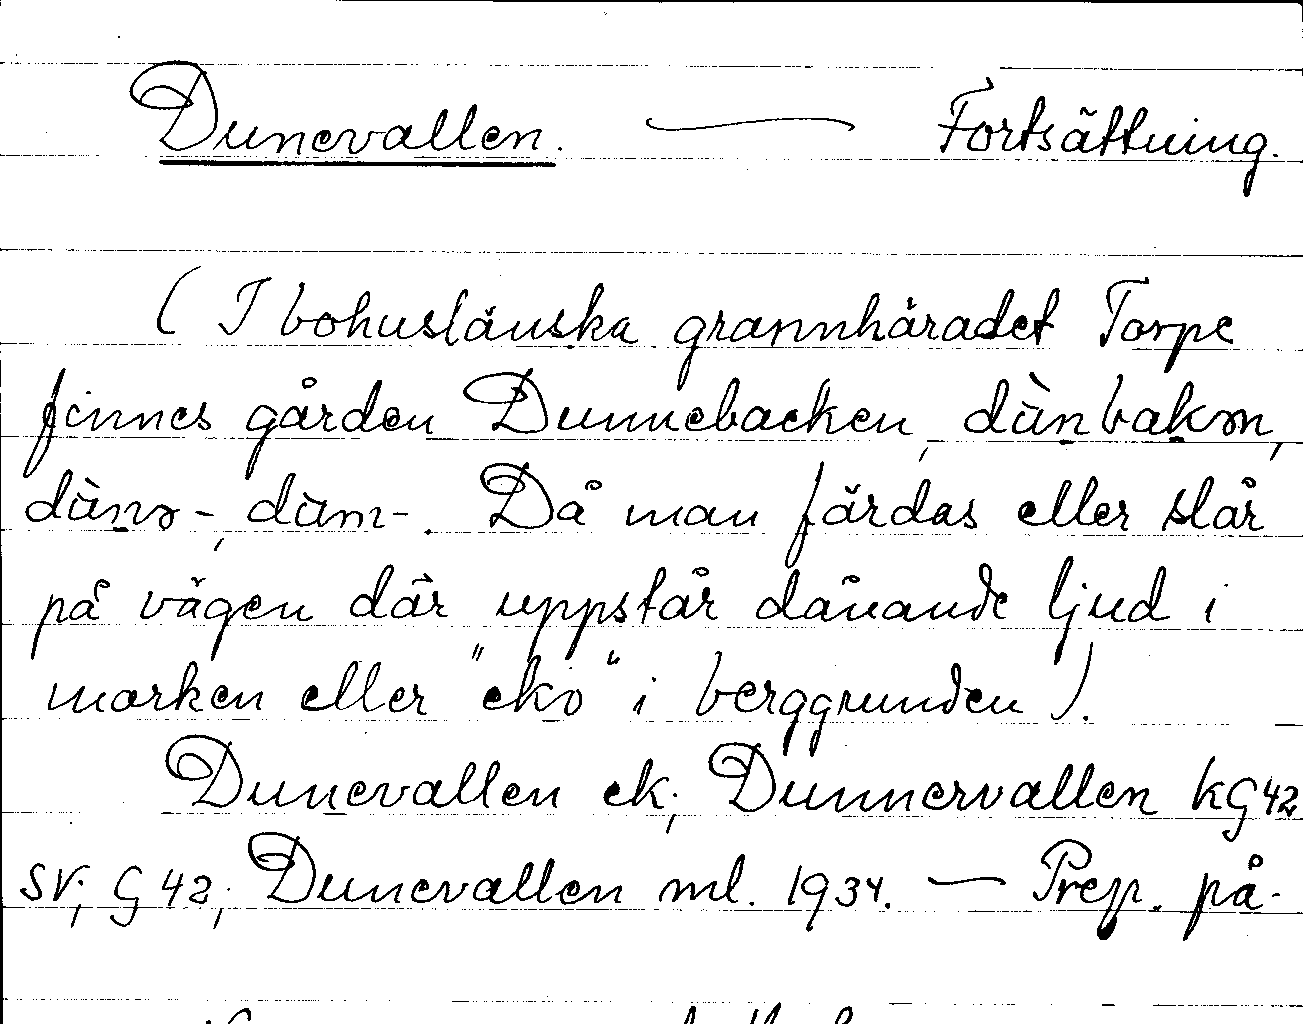 Dunevallen. — Fortsättning.
( I bohuslänska grannhäradet Torpe
finnes gården Dunnebacken, dùnbakən,
dùnə-, dùm-. Då man färdas eller slår
på vägen där uppstår dånande ljud i
marken eller "eko" i berggrunden ).
Dunevallen ek; Dunnervallen kG42
SV; G42; Dunevallen ml. 1934. — Prep. på.